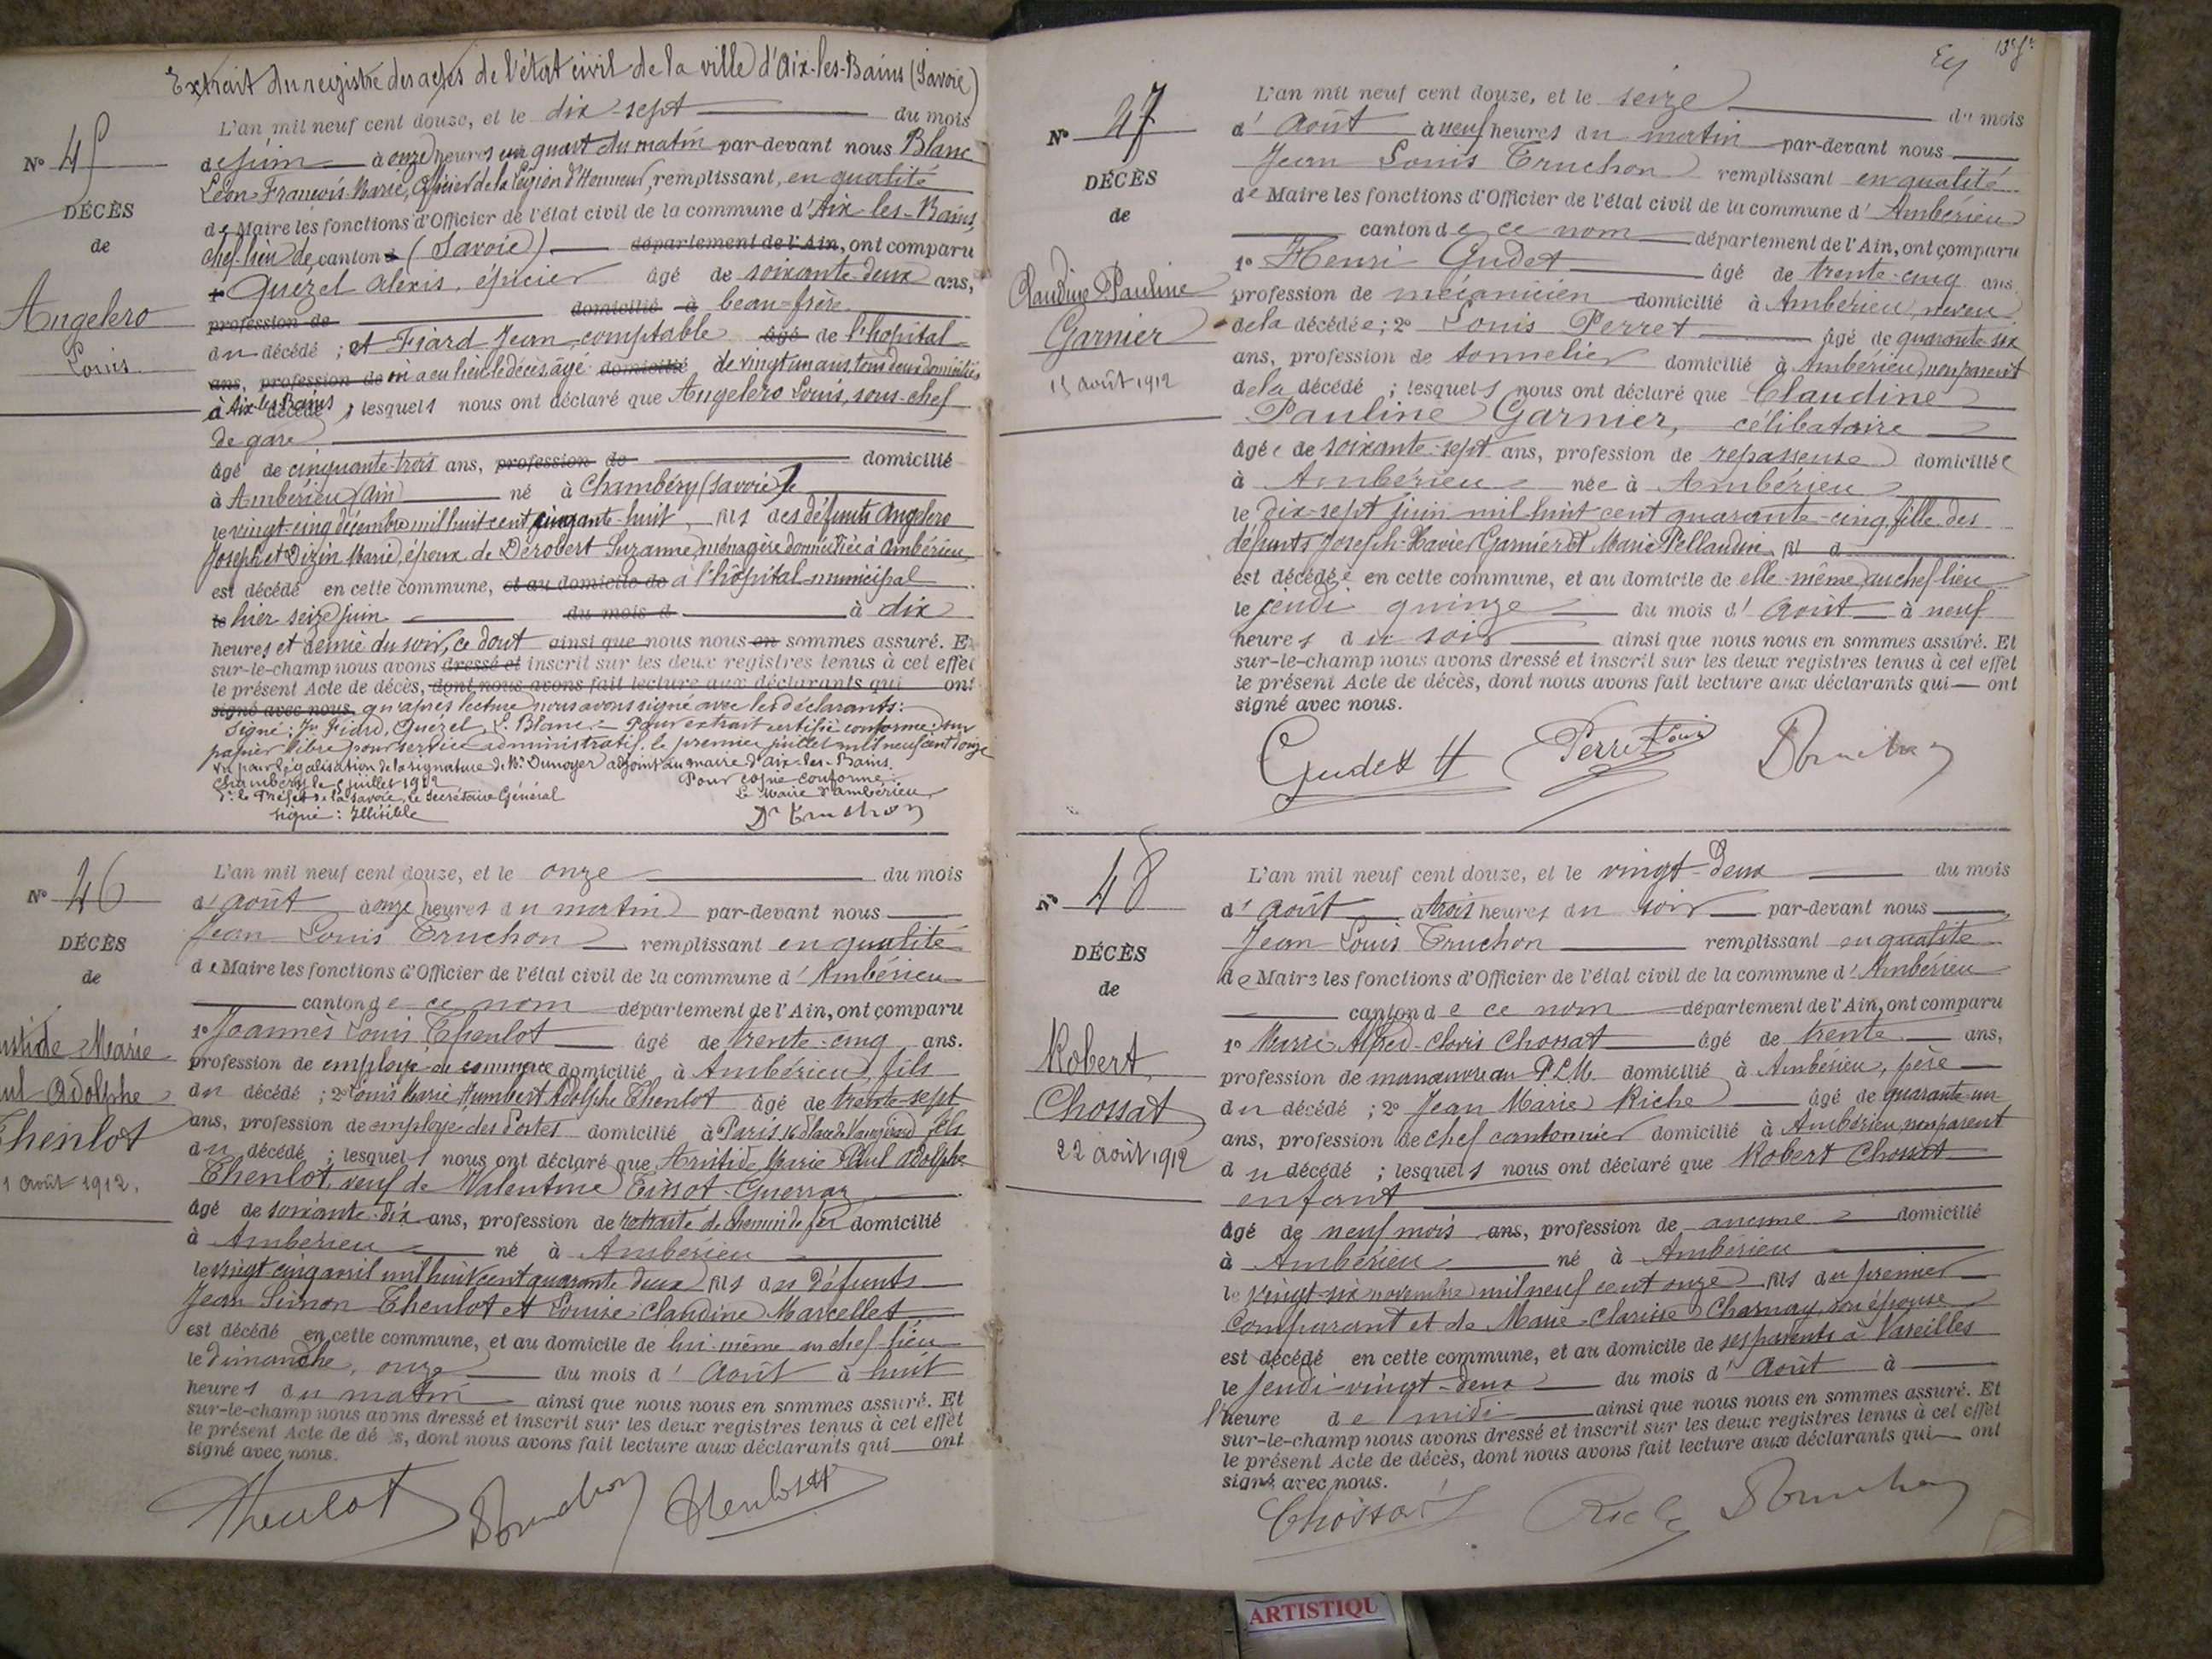 Extrait du registre des actes de l'état civil de la ville d'Aix-les-Bains (Savoie)
N° 45
DÉCÈS
de
Angelero
Louis
L'an mil neuf cent douze, et le dix-sept du mois
de juin à onze heures un quart du matin par-devant nous Blanc
Léon François Marie, Officier de la Légion d'Honneur, remplissant, en qualité
de Maire les fonctions d'Officier de l'état civil de la commune d'Aix-les-Bains
chef-lieu de canton (Savoie) département de l'Ain, ont comparu
1° Quézel Alexis, épicier âgé de soixante-deux ans,
profession de domicilié à beau-frère
du décédé ; et Fiard Jean, comptable âgé de l'hôpital
ans, profession de où a eu lieu le décès âgé domicilié de vingt un ans, tous deux domiciliés
à Aix-les-Bains décédé ; lesquels nous ont déclaré que Angelero Louis, sous-chef
de gare
âgé de cinquante-trois ans, profession de domicilié
à Ambérieu (Ain) né à Chambéry (Savoie)
le vingt-cinq décembre mil huit cent cinquante-huit, fils des défunts Angelero
Joseph et Dizin Marie, époux de Dérobert Suzanne, ménagère domiciliée à Ambérieu
est décédé en cette commune, et au domicile de à l'hôpital municipal
le hier seize juin du mois d à dix
heures et demie du soir, ce dont ainsi que nous nous en sommes assuré. Et
sur-le-champ nous avons dressé et inscrit sur les deux registres tenus à cet effet
le présent Acte de décès, dont nous avons fait lecture aux déclarants qui ont
signé avec nous. qu'après lecture nous avons signé avec les déclarants :
Signé : Jn Fiard, Quézel, L. Blanc - Pour extrait certifié conforme : sur
papier libre pour service administratif. le premier juillet mil neuf cent douze
Vu pour légalisation de la signature de Mr Dunoyer adjoint au maire d'Aix-les-Bains.
Chambéry le 5 juillet 1912
Pr le Préfet de la Savoie, le Secrétaire Général
signé : Illisible
Pour copie conforme :
Le Maire d'Ambérieu
Dr Truchon
N° 46
DÉCÈS
de
Marie
Adolphe
Thenlot
août 1912.
L'an mil neuf cent douze, et le onze du mois
d'août à onze heures du matin par-devant nous
Jean Louis Truchon remplissant en qualité
de Maire les fonctions d'Officier de l'état civil de la commune d'Ambérieu
canton de ce nom département de l'Ain, ont comparu
1° Joannès Louis Thenlot âgé de trente-cinq ans.
profession de employé de commerce domicilié à Ambérieu, fils
du décédé ; 2° Louis Marie Humbert Adolphe Thenlot âgé de trente-sept
ans, profession de employé des Postes domicilié à Paris, 16 fils
du décédé ; lesquels nous ont déclaré que Aristide Marie Paul Adolphe
Thenlot, veuf de Valentine Tissot-Guerraz
âgé de soixante-dix ans, profession de retraité de chemin de fer domicilié
à Ambérieu né à Ambérieu
le vingt cinq avril mil huit cent quarante deux fils des défunts
Jean Simon Thenlot et Louise Claudine Marcellet
est décédé en cette commune, et au domicile de lui-même au chef-lieu
le dimanche, onze du mois d'Août à huit
heures du matin ainsi que nous nous en sommes assuré. Et
sur-le-champ nous avons dressé et inscrit sur les deux registres tenus à cet effet
le présent Acte de dé s, dont nous avons fait lecture aux déclarants qui ont
signé avec nous.
Thenlot Truchon Thenlot
N° 47
DÉCÈS
de
Claudine Pauline
Garnier
15 août 1912
L'an mil neuf cent douze, et le seize du mois
d'Août à neuf heures du matin par-devant nous
Jean Louis Truchon remplissant en qualité
de Maire les fonctions d'Officier de l'état civil de la commune d'Ambérieu
canton de ce nom département de l'Ain, ont comparu
1° Henri Gudet âgé de trente-cinq ans
profession de mécanicien domicilié à Ambérieu, neveu
de la décédée ; 2° Louis Perret âgé de quarante-six
ans, profession de tonnelier domicilié à Ambérieu, non parent
de la décédé ; lesquels nous ont déclaré que Claudine
Pauline Garnier, célibataire
âgée de soixante-sept ans, profession de repasseuse domiciliée
à Ambérieu née à Ambérieu
le dix-sept juin mil huit cent quarante-cinq fille des
défunts Joseph-Xavier Garnier et Marie Pellaudin fil d
est décédée en cette commune, et au domicile de elle-même, au chef-lieu
le jeudi quinze du mois d'Août à neuf
heures du soir ainsi que nous nous en sommes assuré. Et
sur-le-champ nous avons dressé et inscrit sur les deux registres tenus à cet effet
le présent Acte de décès, dont nous avons fait lecture aux déclarants qui ont
signé avec nous.
Gudet H Perret Louis Truchon
N° 48
DÉCÈS
de
Robert
Chossat
22 août 1912
L'an mil neuf cent douze, et le vingt-deux du mois
d'Août à trois heures du soir par-devant nous
Jean Louis Truchon remplissant en qualité
de Maire les fonctions d'Officier de l'état civil de la commune d'Ambérieu
canton de ce nom département de l'Ain, ont comparu
1° Marie-Alfred-Clovis Chossat âgé de trente ans,
profession de manœuvre au P.L.M. domicilié à Ambérieu, père
du décédé ; 2° Jean Marie Riche âgé de quarante-un
ans, profession de chef cantonnier domicilié à Ambérieu, non parent
du décédé ; lesquels nous ont déclaré que Robert Chossat
enfant
âgé de neuf mois ans, profession de aucune domicilié
à Ambérieu né à Ambérieu
le vingt-six novembre mil neuf cent onze fils du premier
Comparant et de Marie-Clarisse Charnay, son épouse
est décédé en cette commune, et au domicile de ses parents à Vareilles
le jeudi-vingt-deux du mois d'Août à
l'heure de midi ainsi que nous nous en sommes assuré. Et
sur-le-champ nous avons dressé et inscrit sur les deux registres tenus à cet effet
le présent Acte de décès, dont nous avons fait lecture aux déclarants qui ont
signé avec nous.
Chossat Riche Truchon
ARTISTIQU